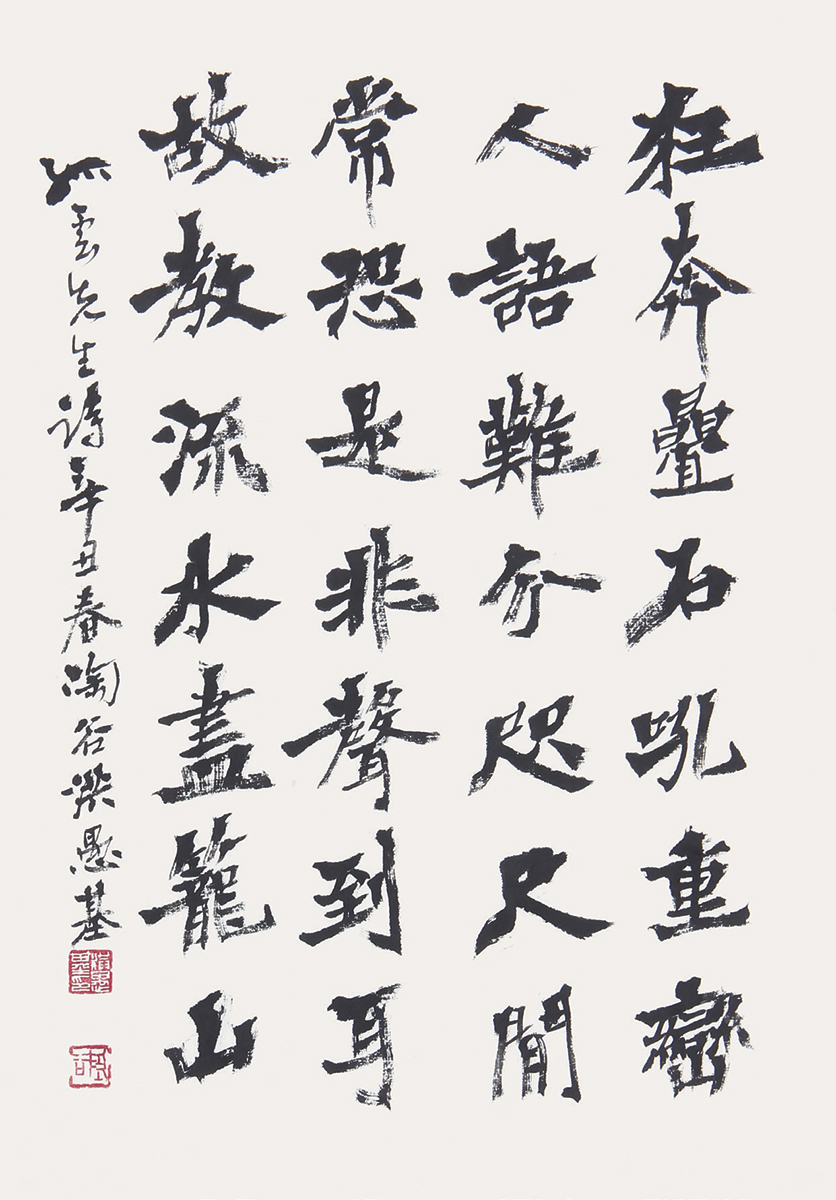 狂奔疊石吼重巒
人語難分咫尺間
常恐是非聲到耳
故教流水盡籠山
孤雲先生詩辛丑春陶谷梁愚基